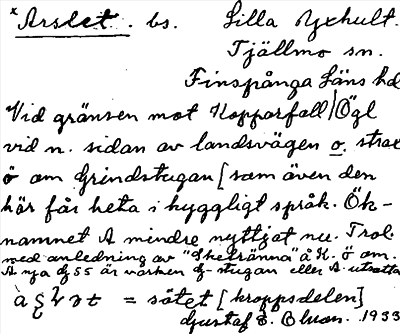 x Arslet. bs. Lilla Yxhult.
Tjällmo sn.
Finspånga Läns hd
Vid gränsen mot Kopparfall/Ögl
vid n. sidan av landsvägen o. strax
ö om Grindstugan [som även den
här får heta i hyggligt språk. Ök-
namnet A mindre nyttjat nu. Trol.
med anledning av "Sketränna" å K. ö om.
A nya G 55 är varken G-stugan eller A utsatta
= sätet [kroppsdelen]
Gustaf E. Olsson. 1933